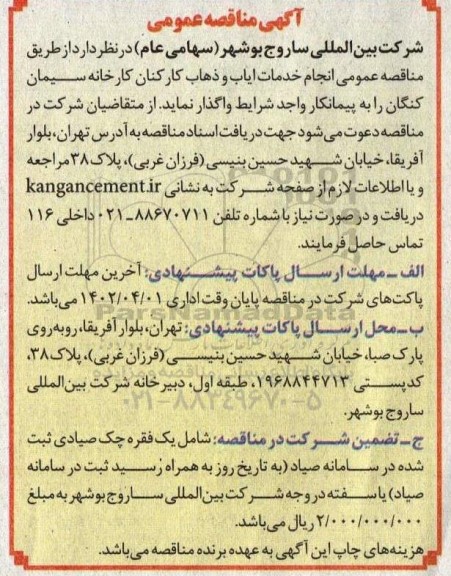 آگهی مناقصه عمومی
شرکت بین المللی ساروج بوشهر (سهامی عام) در نظر دارد از طریق
مناقصه عمومی انجام خدمات ایاب و ذهاب کارکنان کارخانه سیمان
کنگان را به پیمانکار واجد شرایط واگذار نماید. از متقاضیان شرکت در
مناقصه دعوت می‌شود جهت دریافت اسناد مناقصه به آدرس تهران، بلوار
آفریقا، خیابان شهید حسین بنیسی (فرزان غربی)، پلاک ۳۸ مراجعه
و یا اطلاعات لازم از صفحه شرکت به نشانی kangancement.ir
دریافت و در صورت نیاز با شماره تلفن ۸۸۶۷۰۷۱۱-۰۲۱ داخلی ۱۱۶
تماس حاصل فرمایند.
الف ـ مهلت ارسال پاکات پیشنهادی: آخرین مهلت ارسال
پاکت‌های شرکت در مناقصه پایان وقت اداری ۱۴۰۲/۰۴/۰۱ می‌باشد.
ParsNamadData
ب ـ محل ارسال پاکات پیشنهادی: تهران، بلوار آفریقا، روبه‌روی
پارک صبا، خیابان شهید حسین بنیسی (فرزان غربی)، پلاک ۳۸،
کدپستی ۱۹۶۸۸۴۴۷۱۳، طبقه اول، دبیرخانه شرکت بین‌المللی
ساروج بوشهر.
۰۲۱-۸۸۳۴۹۶۷۰-۵
ج ـ تضمین شرکت در مناقصه: شامل یک فقره چک صیادی ثبت
شده در سامانه صیاد (به تاریخ روز به همراه رسید ثبت در سامانه
صیاد) یا سفته در وجه شرکت بین‌المللی ساروج بوشهر به مبلغ
۲/۰۰۰/۰۰۰/۰۰۰ ریال می‌باشد.
هزینه‌های چاپ این آگهی به عهده برنده مناقصه می‌باشد.